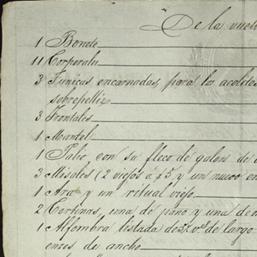 De la vuelta
1 Bonete
11 Corporales
3 Tunicas encarnadas, para los acolitos
sobrepelliz
3 Frontales
1 Mantel
1 Palio con su fleco de galon de
3 Misales (2 viejos a $3 y un nuevo en
1 Ara y un ritual viejo
2 Cortinas, una de paño y una de
1 Alfombra listada de 7 v.s de largo
de ancho